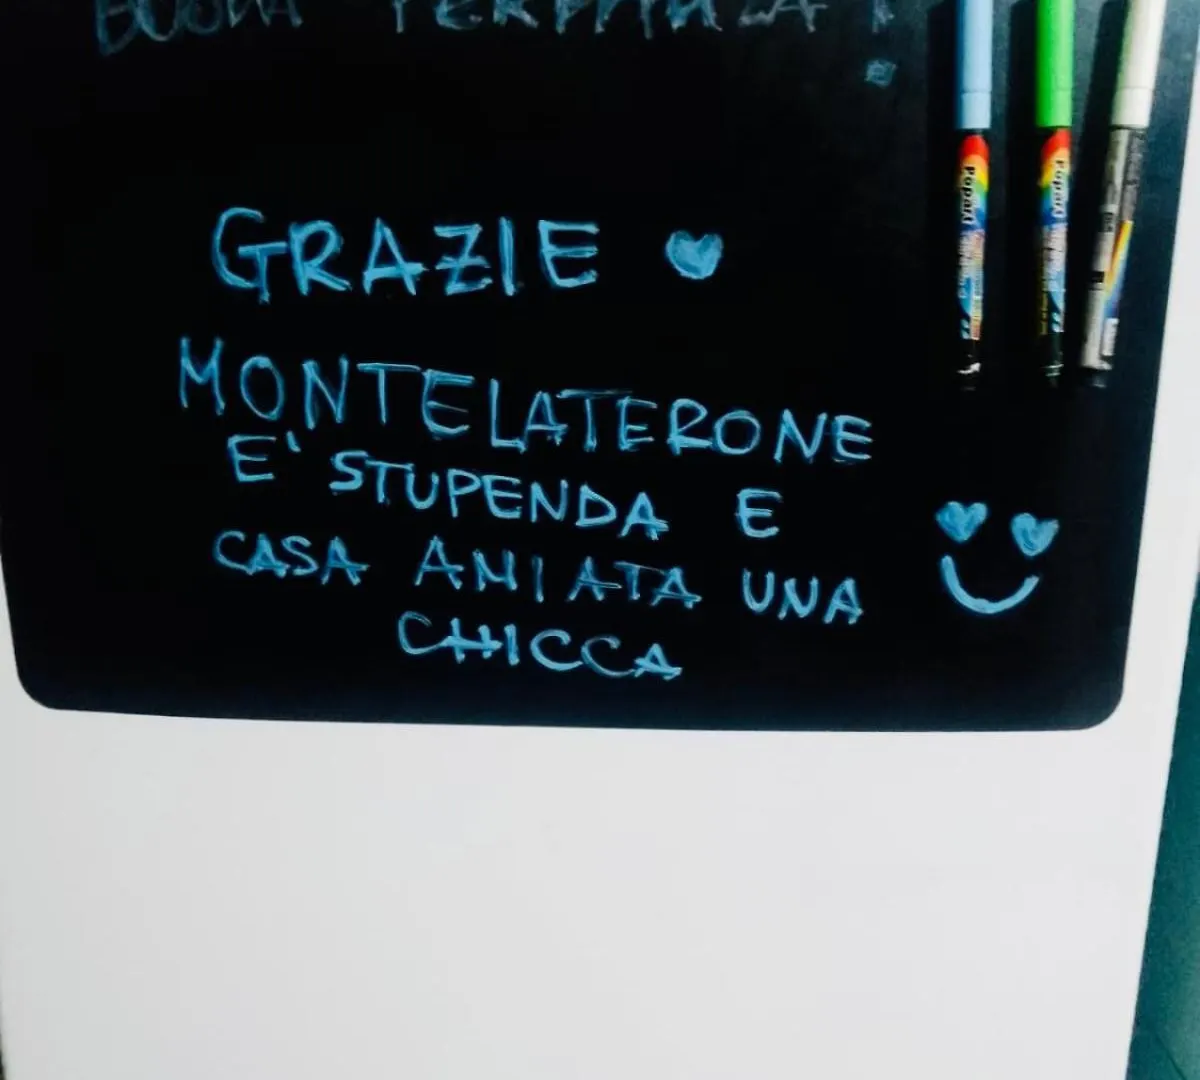 BUONA PERMANENZA !
GRAZIE
MONTELATERONE
E' STUPENDA E
CASA AMIATA UNA
CHICCA
Popart
Popart